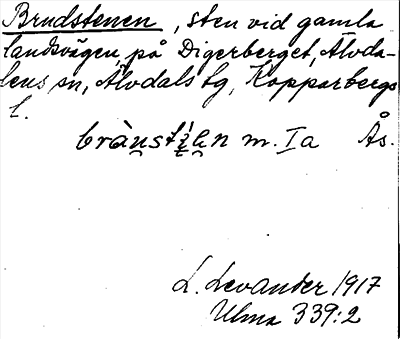 Brudstenen, sten vid gamla
landsvägen på Digerberget, Älvda-
lens sn, Älvdals tg, Kopparbergs
l.
m. Ia Ås.
L. Levander 1917
Ulma 339:2